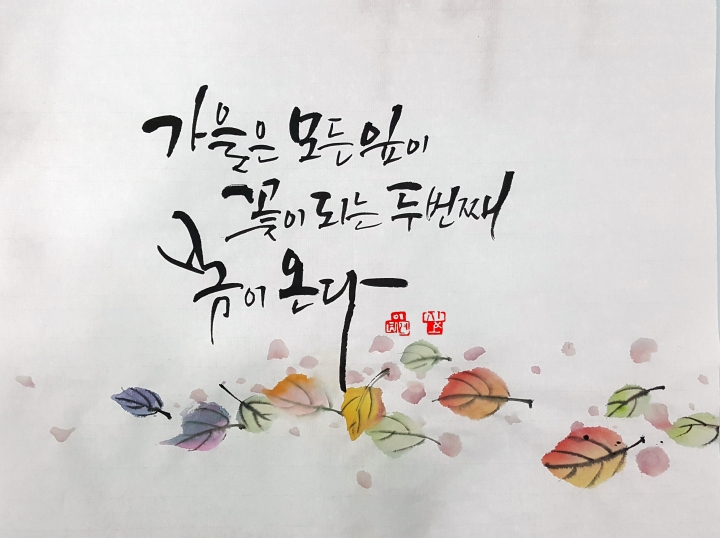 가을은 모든 잎이
꽃이 되는 두번째
봄이 온다